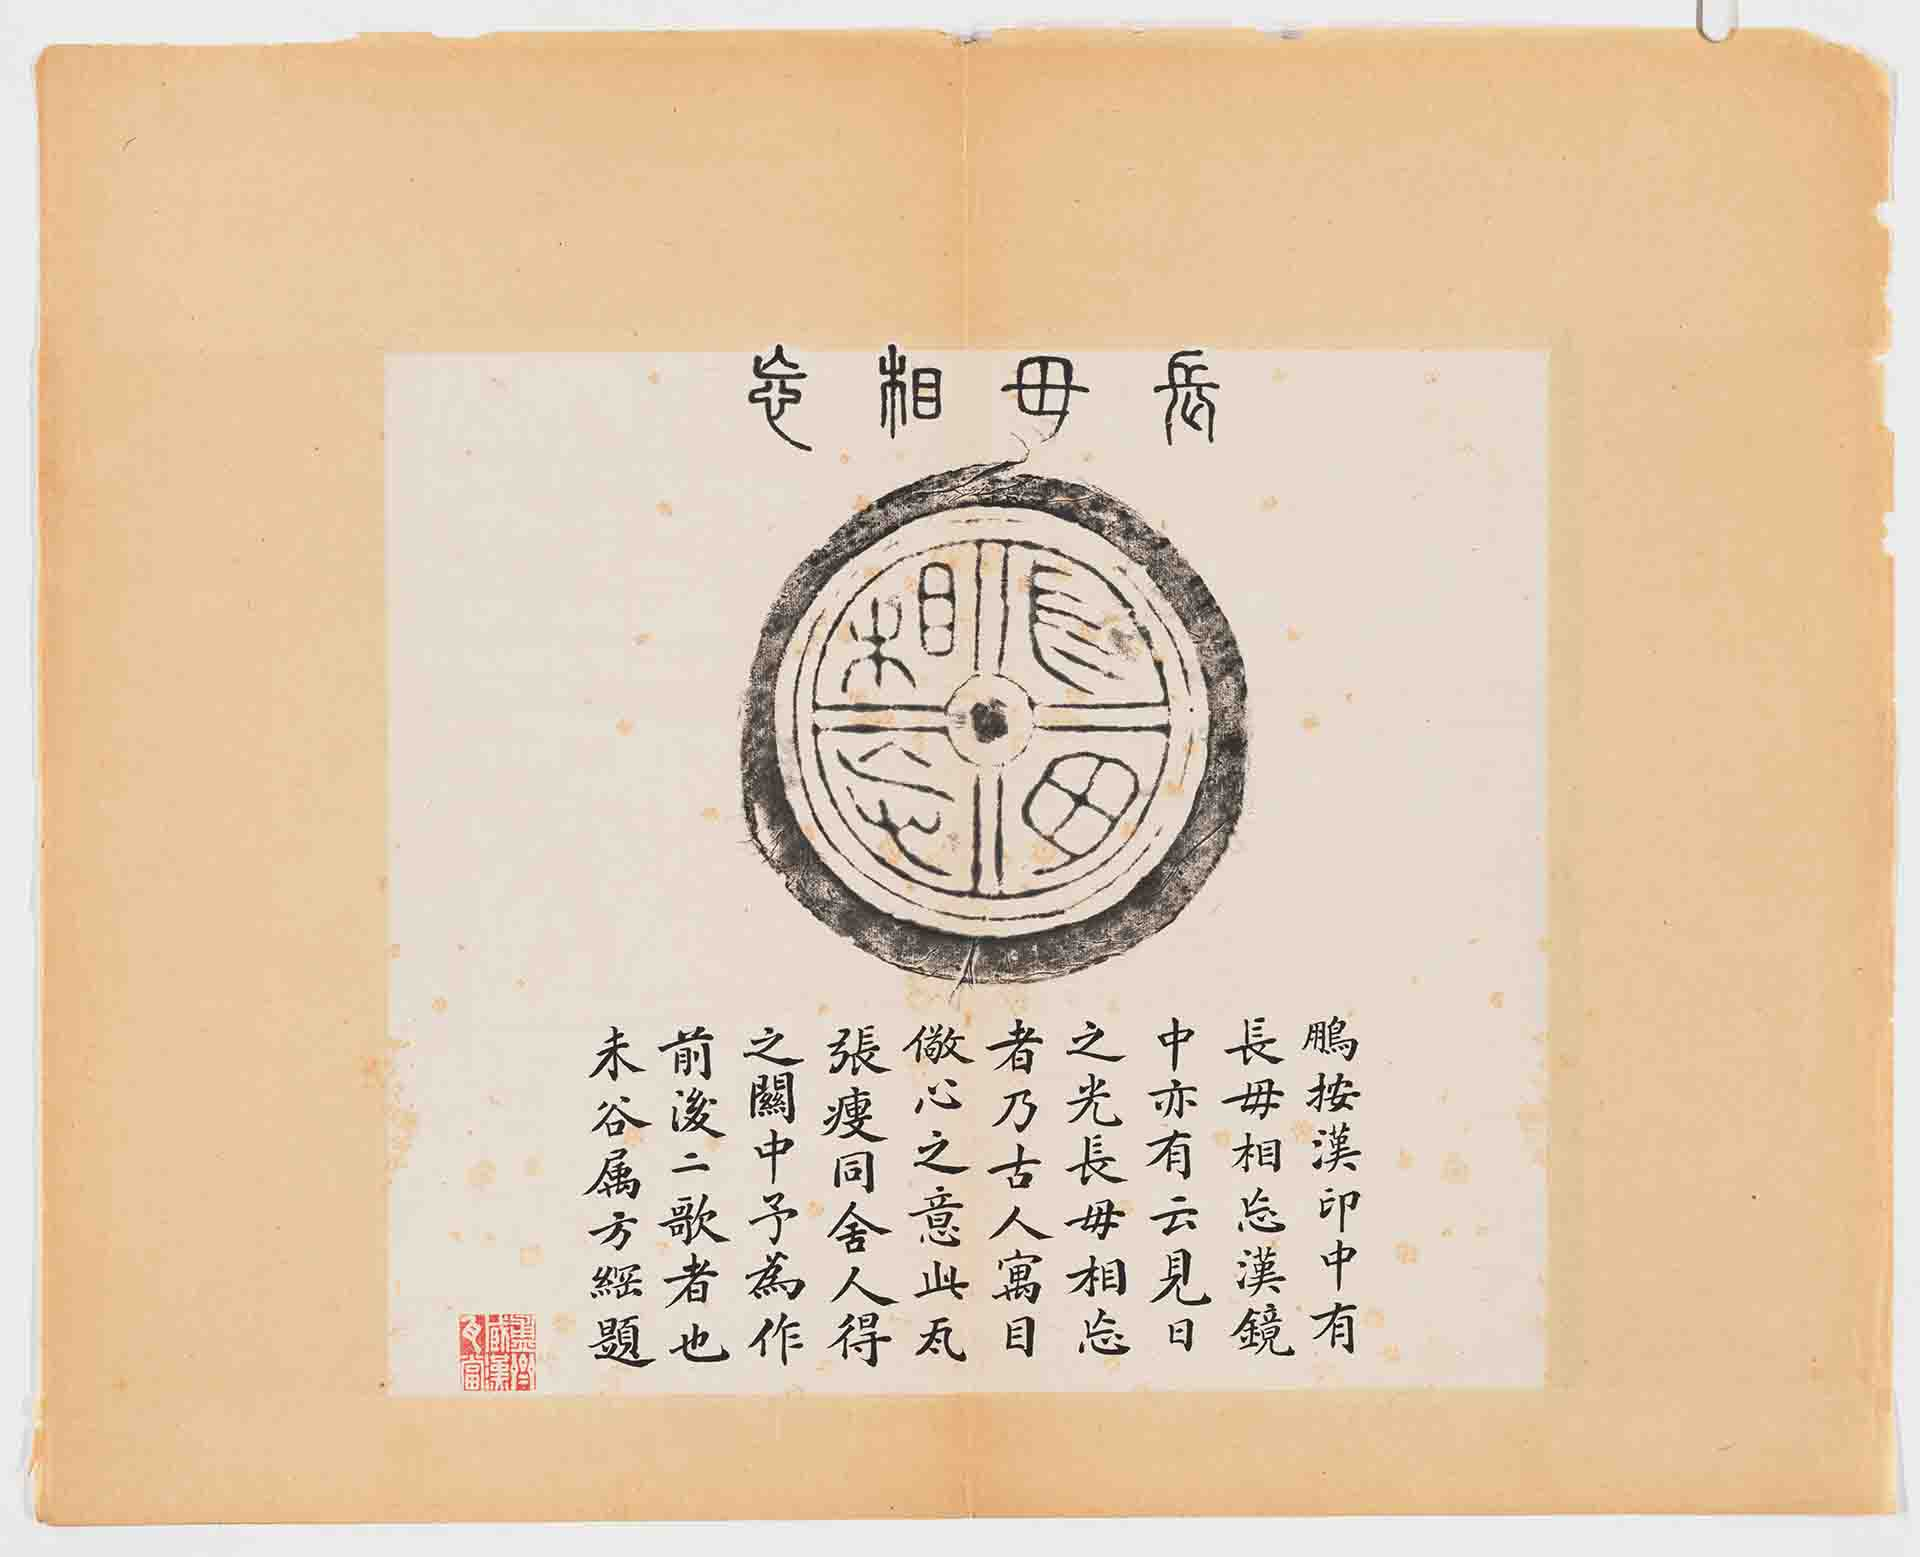 長毋相忘
長毋相忘
鵬按漢印中有
長毋相忘漢鏡
中亦有云見日
之光長毋相忘
者乃古人寓目
儆心之意此瓦
張瘦同舍人得
之關中予為作
前後二歌者也
未谷属方綱題